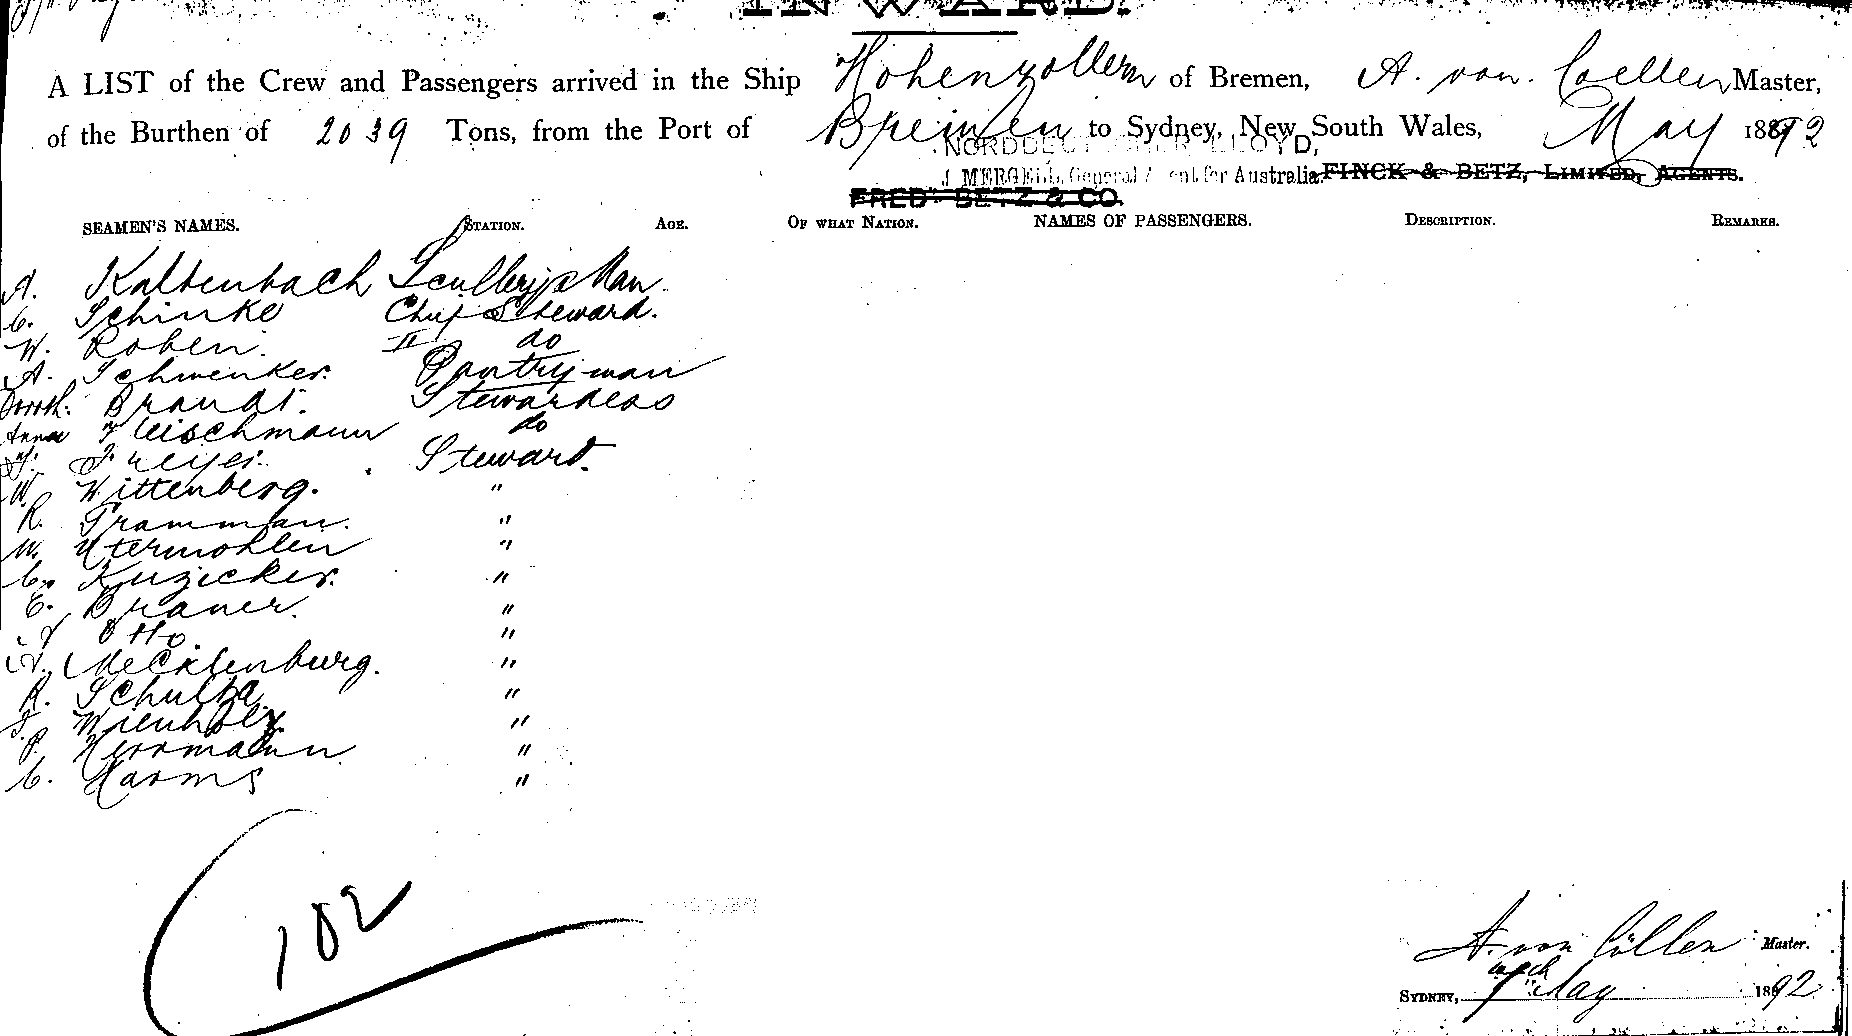 INWARD.
A LIST of the Crew and Passengers arrived in the Ship Hohenzollern of Bremen, A. von. Coellen Master,
of the Burthen of 2039 Tons, from the Port of Bremen to Sydney, New South Wales, May 1892
NORDDEUTSCHER LLOYD,
J MERGELL, General Agent for Australia. FINCK & BETZ, LIMITED, AGENTS.
FRED BETZ & CO.
SEAMEN'S NAMES. STATION. AGE. OF WHAT NATION. NAMES OF PASSENGERS. DESCRIPTION. REMARKS.
A. Kaltenbach Scullery Man.
C. Schinke Chief Steward.
W. Roben. II do
A. Schwenker. Pantryman
Doroth. Brandt. Stewardess
Anna Fleischmann do
F. Freyer. Steward.
W. Wittenberg. "
R. Tramman. "
W. Utermohlen "
C. Kuzicker. "
E. Braner. "
Otto. "
A. Mecklenburg. "
R. Schultze "
F. Wienholz "
P. Herrmann "
C. Harms "
102
A. von Cöllen Master.
SYDNEY, May 1892